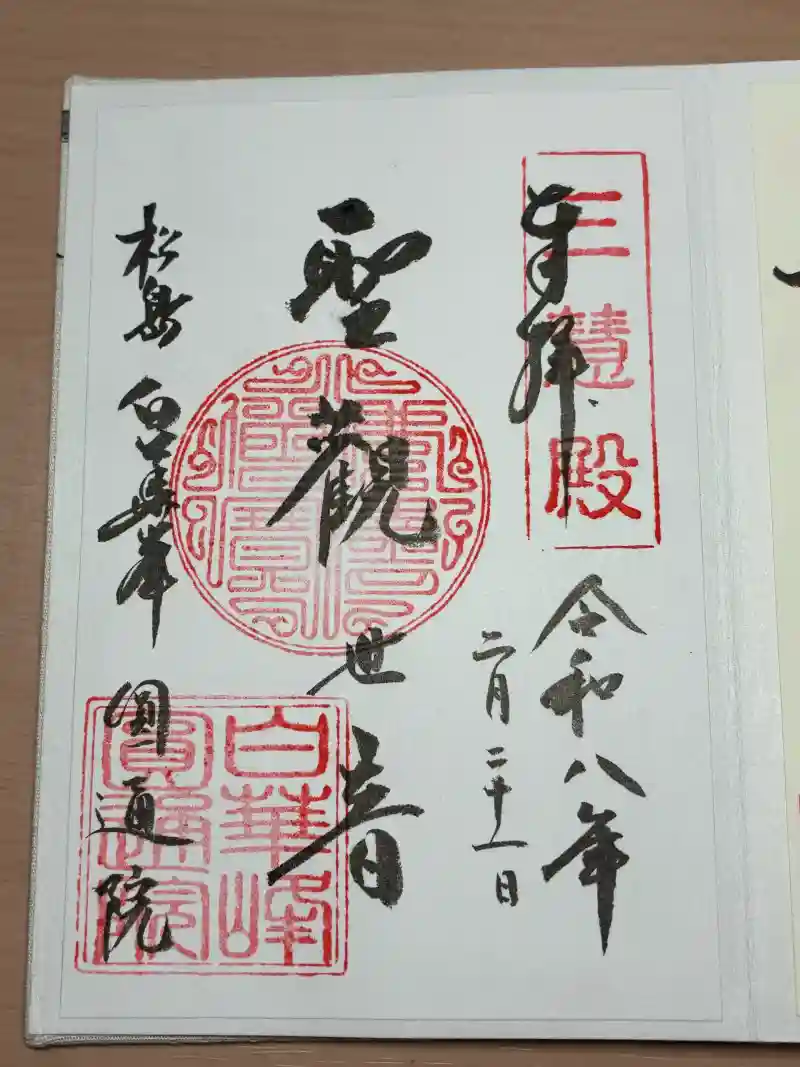 三慧殿
奉拝
令和八年
二月二十一日
聖觀世音
松島 白華峯 圓通院
白華峰
圓通院